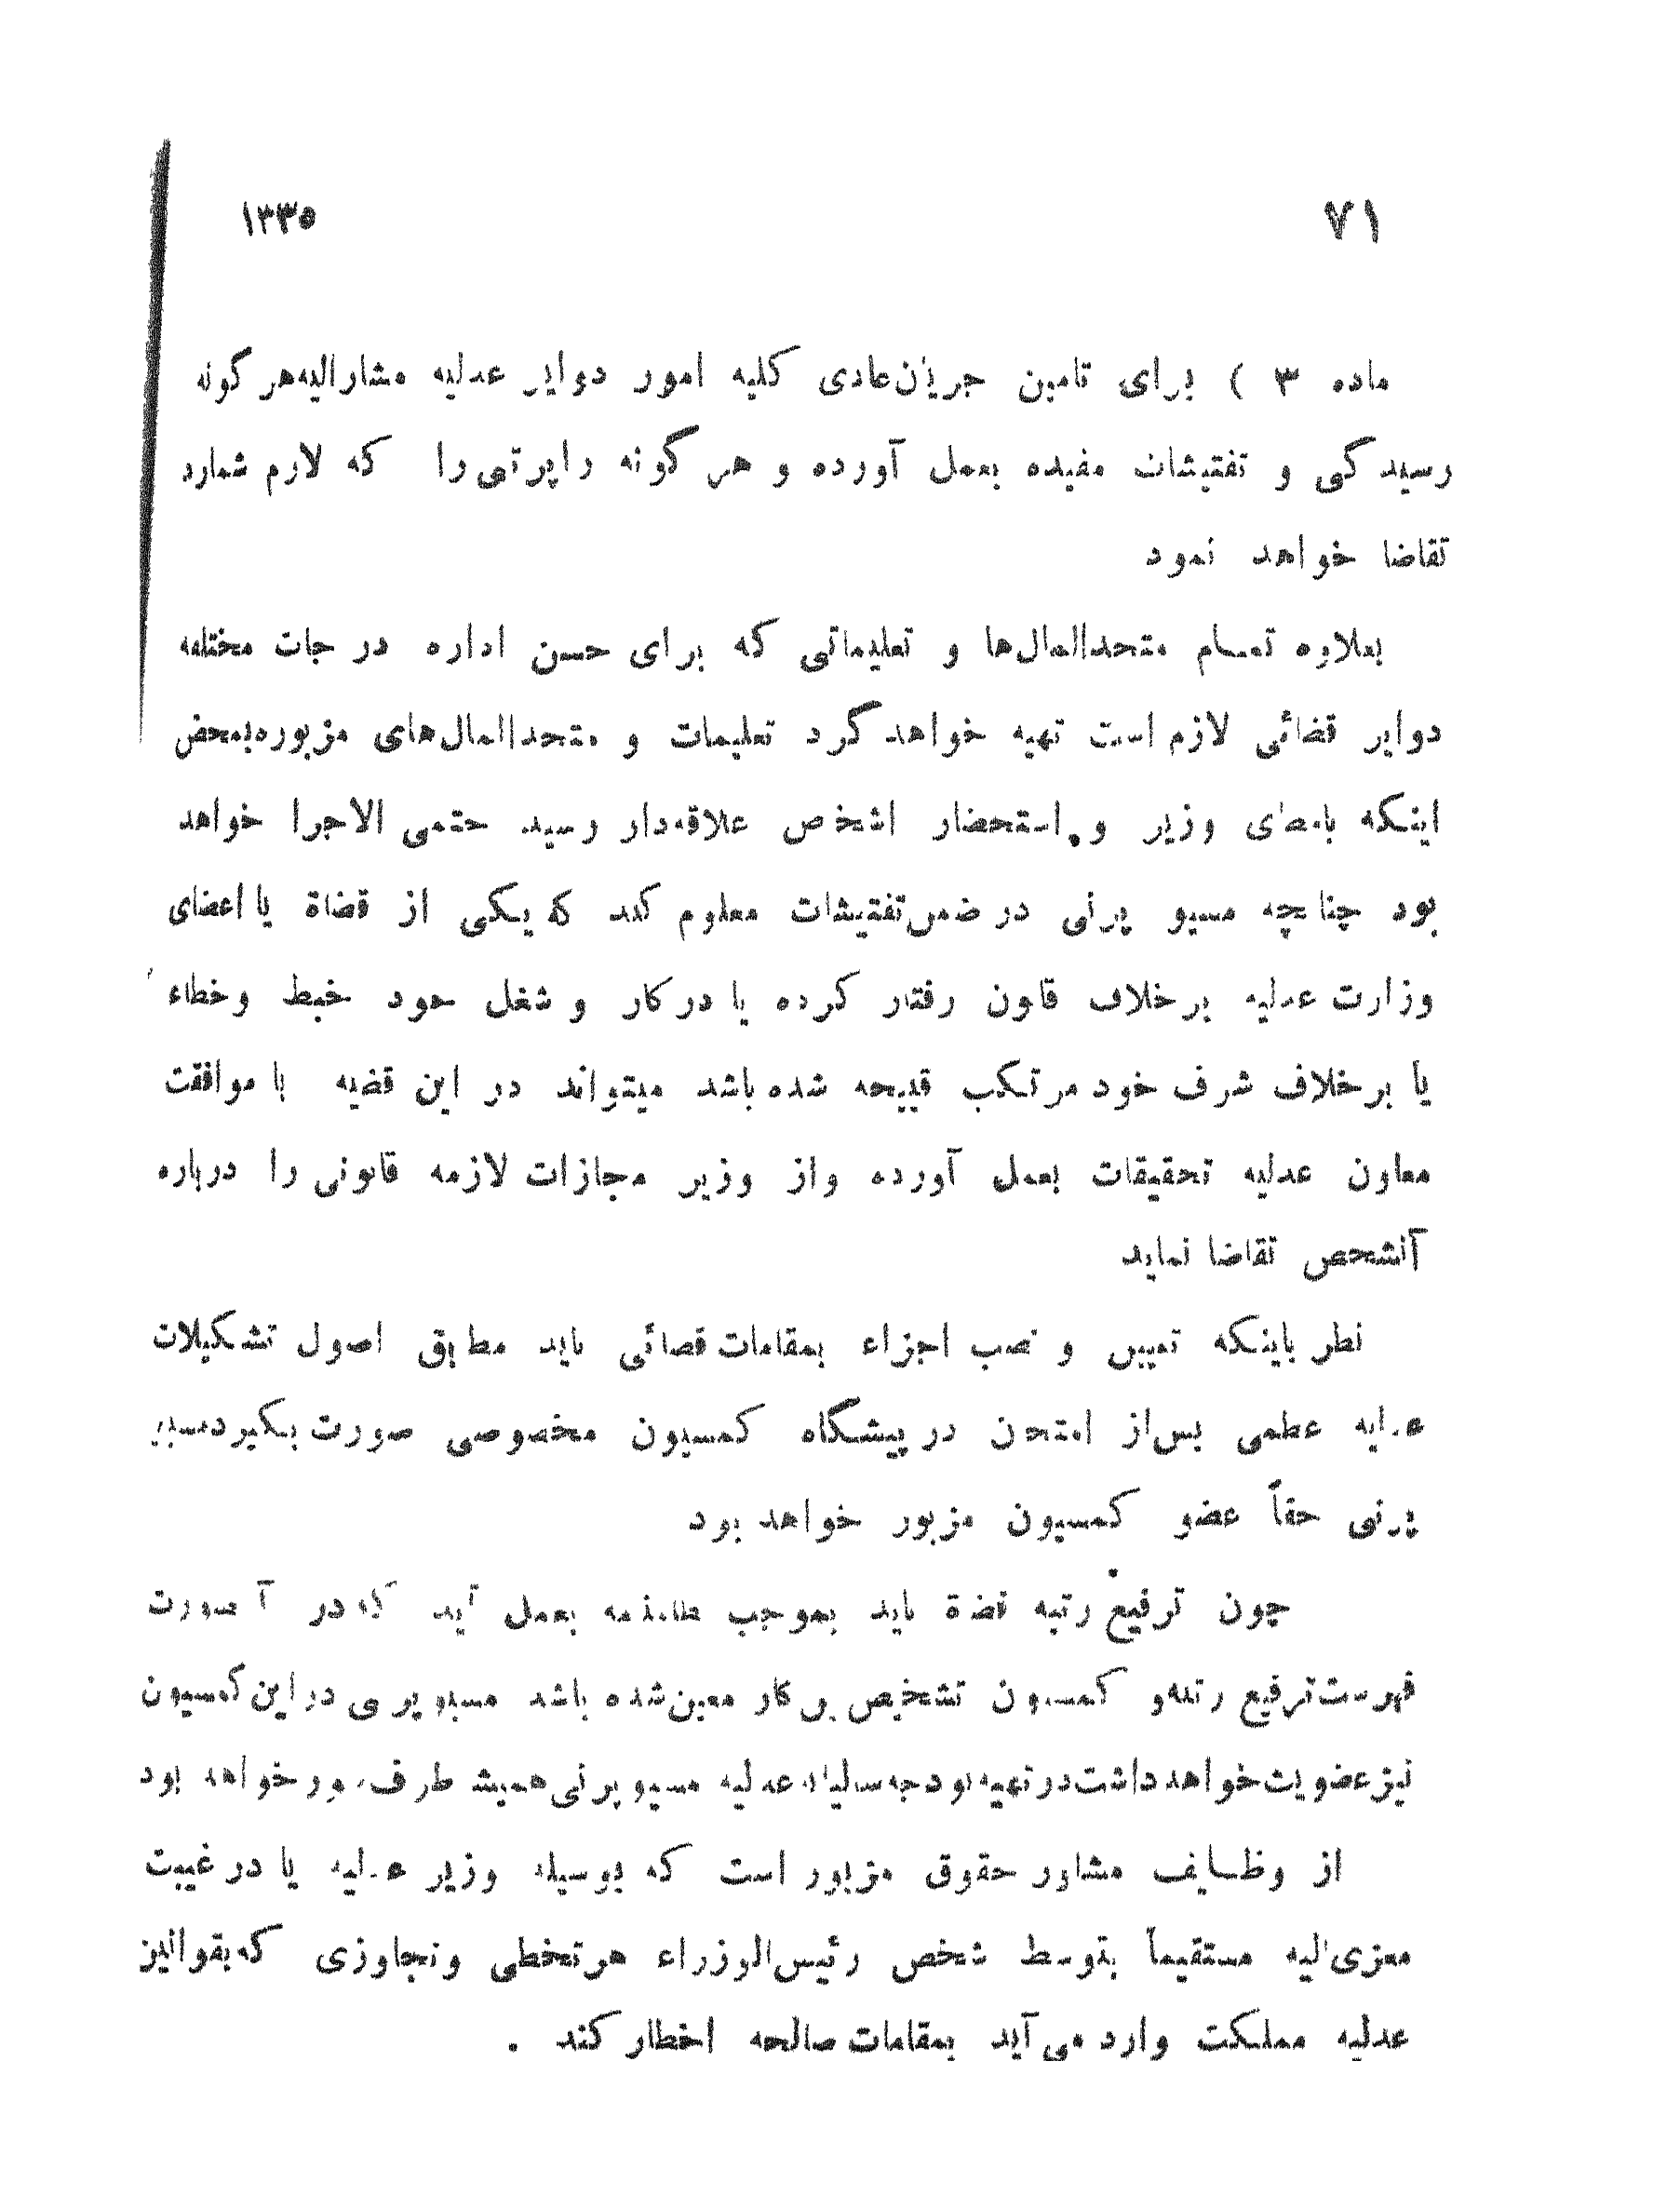 ۷۱ ۱۳۳۵
ماده ۳ ) برای تامین جریان عادی کلیه امور دوایر عدلیه مشارالیه هر گونه
رسیدگی و تفتیشات مفیده بعمل آورده و هر گونه راپرتی را که لازم شمارد
تقاضا خواهد نمود
بعلاوه تمام متحدالمال‌ها و تعلیماتی که برای حسن اداره در جات مختلفه
دوایر قضائی لازم است تهیه خواهد کرد تعلیمات و متحدالمال‌های مزبوره بمحض
اینکه بامضای وزیر و استحضار اشخاص علاقه‌دار رسید حتمی الاجرا خواهد
بود چنانچه مسیو پرنی در ضمن تفتیشات معلوم کند که یکی از قضاة یا اعضای
وزارت عدلیه برخلاف قانون رفتار کرده یا در کار و شغل خود خبط و خطاء
یا بر خلاف شرف خود مرتکب قبیحه شده باشد میتواند در این قضیه با موافقت
معاون عدلیه تحقیقات بعمل آورده واز وزیر مجازات لازمه قانونی را درباره
آنشخص تقاضا نماید
نظر باینکه تعیین و نصب اجزاء بمقامات قضائی باید مطابق اصول تشکیلات
عدلیه عظمی پس از امتحان در پیشگاه کمسیون مخصوصی صورت بگیرد مسیو
پرنی حقاً عضو کمسیون مزبور خواهد بود
چون ترفیع رتبه قضاة باید بموجب نظامنامه بعمل آید که در آن صورت
فهرست ترفیع رتبه و کمسیون تشخیص بی کار معین شده باشد مسیو پرنی در این کمسیون
نیز عضویت خواهد داشت در تهیه بودجه سالیانه عدلیه مسیو پرنی همیشه طرف شور خواهد بود
از وظایف مشاور حقوق مزبور است که بوسیله وزیر عدلیه یا در غیبت
معزی‌الیه مستقیماً بتوسط شخص رئیس‌الوزراء هر تخطی و تجاوزی که بقوانین
عدلیه مملکت وارد می‌آید بمقامات صالحه اخطار کند .